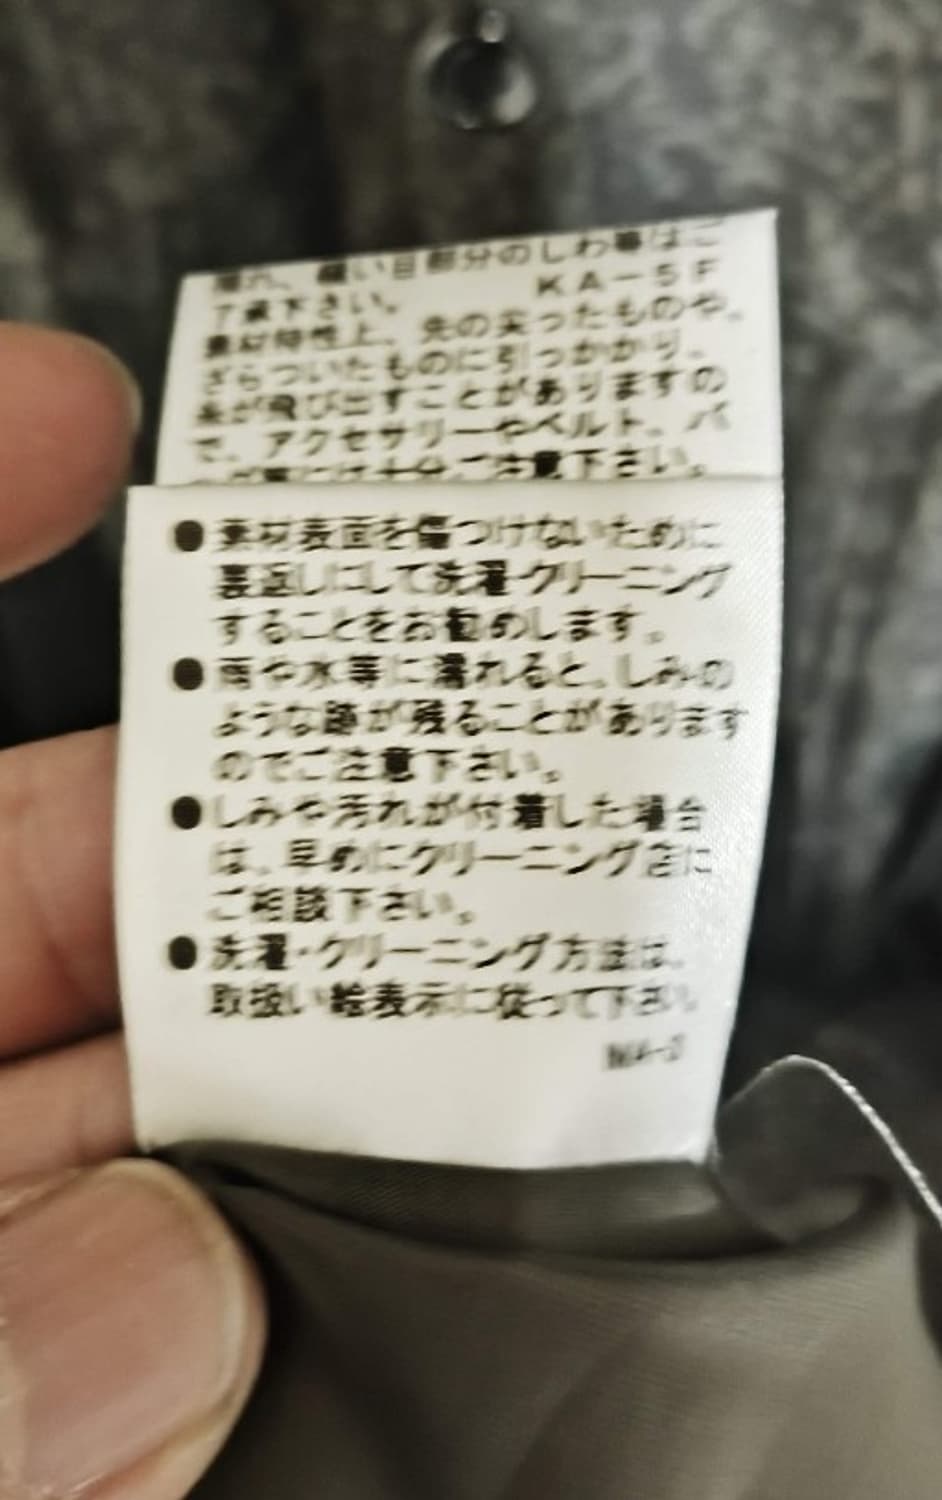 縫い目部分のしわ等はご
了承下さい。 KA-5F
素材特性上、先の尖ったものや、
ざらついたものに引っかかり、
糸が飛び出すことがありますの
で、アクセサリーやベルト、バ
等には十分ご注意下さい。
●素材表面を傷つけないために
裏返しにして洗濯・クリーニング
することをお勧めします。
●雨や水等に濡れると、しみの
ような跡が残ることがあります
のでご注意下さい。
●しみや汚れが付着した場合
は、早めにクリーニング店に
ご相談下さい。
●洗濯・クリーニング方法は、
取扱い絵表示に従って下さい